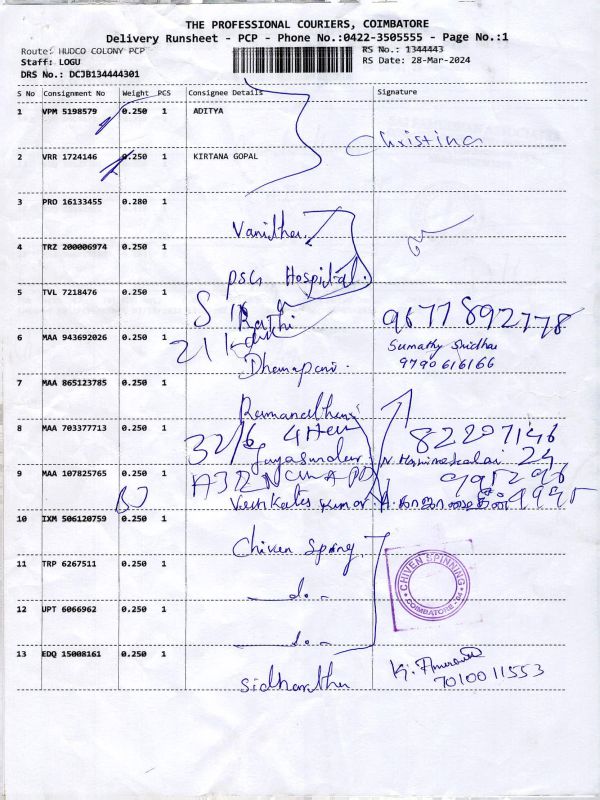 THE PROFESSIONAL COURIERS, COIMBATORE
Delivery Runsheet - PCP - Phone No.:0422-3505555 - Page No.:1
Route: HUDCO COLONY PCP
RS No.: 1344443
Staff: LOGU
RS Date: 28-Mar-2024
DRS No.: DCJB134444301
S No Consignment No Weight PCS Consignee Details Signature
1 VPM 5198579 0.250 1 ADITYA
Christina
2 VRR 1724146 0.250 1 KIRTANA GOPAL
3 PRO 16133455 0.280 1
Vanitha
4 TRZ 200006974 0.250 1
PSG Hospital.
5 TVL 7218476 0.250 1
9677892778
6 MAA 943692026 0.250 1
Sumathy Sridhar
9790616166
Dhanapani.
7 MAA 865123785 0.250 1
8 MAA 703377713 0.250 1
32/6
82207146
24
9 MAA 107825765 0.250 1
Venkates Kumar
10 IXM 506120759 0.250 1
Chiven Spinng
11 TRP 6267511 0.250 1
do
CHIVEN SPINNING
COIMBATORE - 04
12 UPT 6066962 0.250 1
do
13 EDQ 15008161 0.250 1
Sidharatha
7010011553